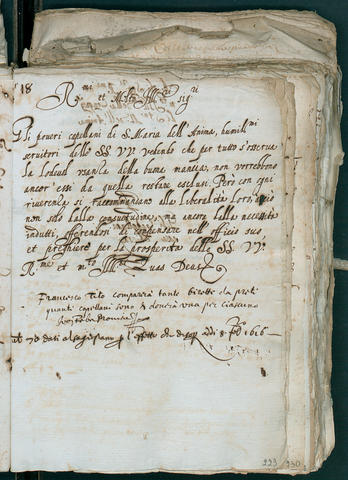 18
R.mi et M.to Ill.ri sig.ri
Gli poveri capellani di S. Maria dell'Anima, humil.mi
servitori delle SS VV. vedendo che per tutto s'osserva
la lodevol usanza della buona mancia, non vorrebbono
ancor essi da quella restare esclusi. Però con ogni
riverenza si raccommandano alla liberalità loro, a ciò
non solo dalla consuetudine, ma ancora dalla necessità
indutti, offerendosi di compensare nell'officio suo
et preghiere per la prosperità delle SS VV.
R.me et m.to Ill.ri Quas Deus
Francesco Tito comparrà tante birette da preti
quanti capellani sono et donerà una per ciascuno
dati al sagristano p l'effetto che di sop. adi 8 1616
229 230